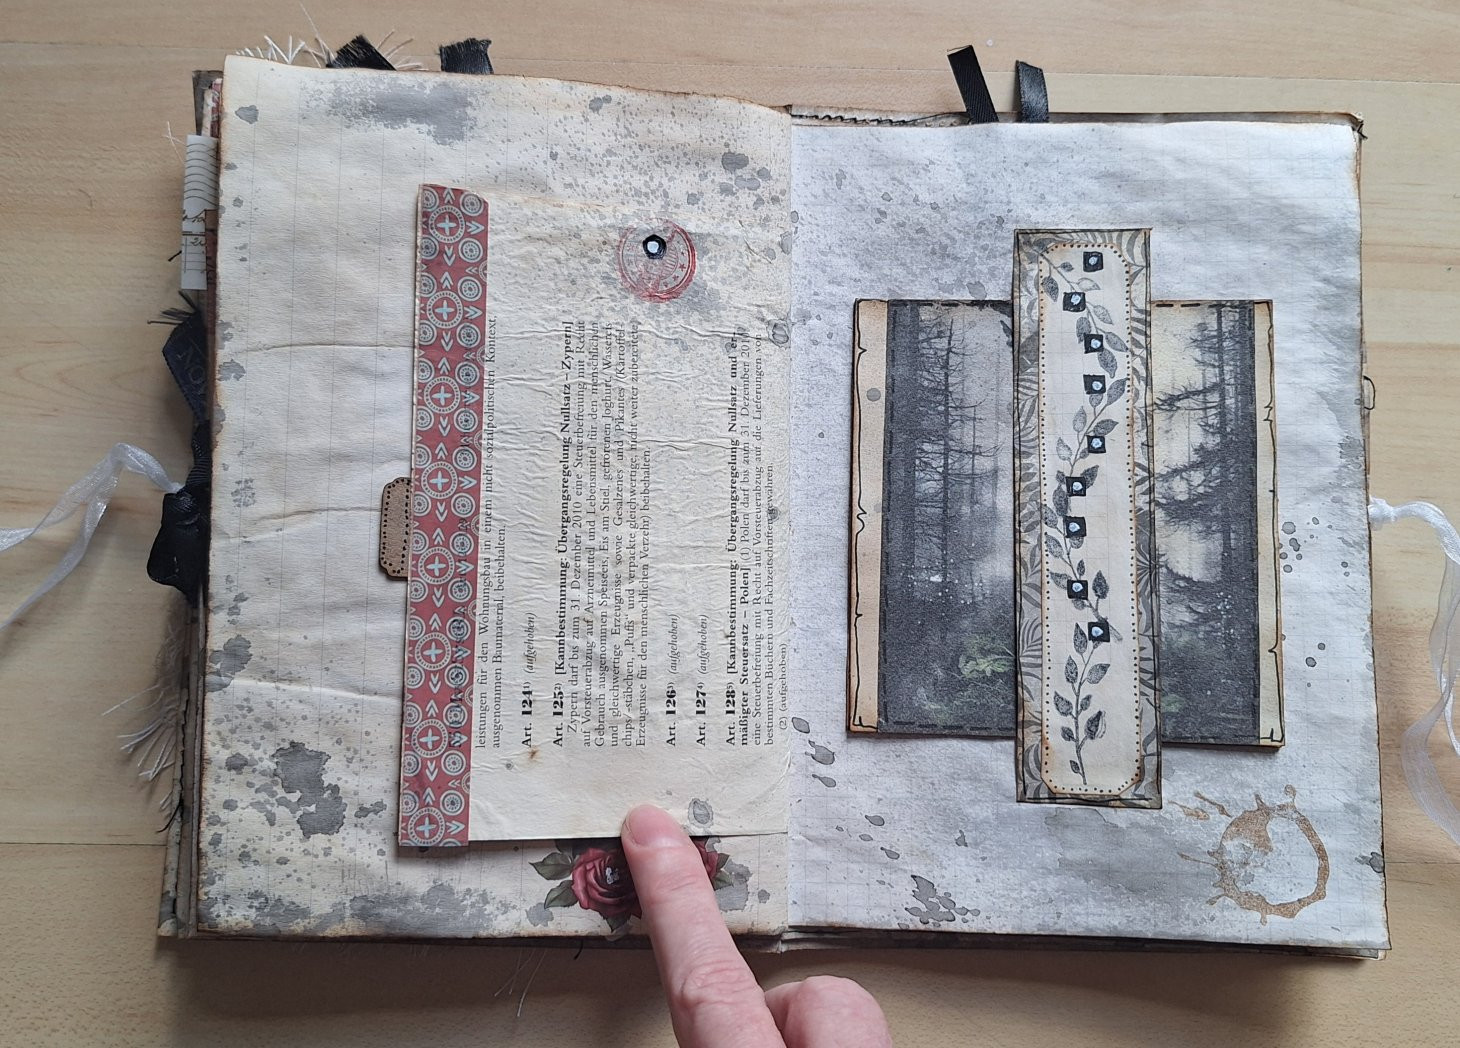 leistungen für den Wohnungsbau in einem nicht sozialpolitischen Kontext,
ausgenommen Baumaterial, beibehalten.
Art. 124¹⁾ (aufgehoben)
Art. 125²⁾ [Kannbestimmung: Übergangsregelung Nullsatz – Zypern]
Zypern darf bis zum 31. Dezember 2010 eine Steuerbefreiung mit Recht
auf Vorsteuerabzug auf Arzneimittel und Lebensmittel für den menschlichen
Gebrauch ausgenommen Speiseeis, Eis am Stiel, gefrorenen Joghurt, Wassereis
und gleichwertige Erzeugnisse sowie Gesalzenes und Pikantes (Kartoffel-
chips/-stäbchen, „Puffs“ und verpackte gleichwertige, nicht weiter zubereitete
Erzeugnisse für den menschlichen Verzehr) beibehalten.
Art. 126³⁾ (aufgehoben)
Art. 127⁴⁾ (aufgehoben)
Art. 128⁵⁾ [Kannbestimmung: Übergangsregelung Nullsatz und er-
mäßigter Steuersatz – Polen] (1) Polen darf bis zum 31. Dezember 2010
eine Steuerbefreiung mit Recht auf Vorsteuerabzug auf die Lieferungen von
bestimmten Büchern und Fachzeitschriften gewähren.
(2) (aufgehoben)